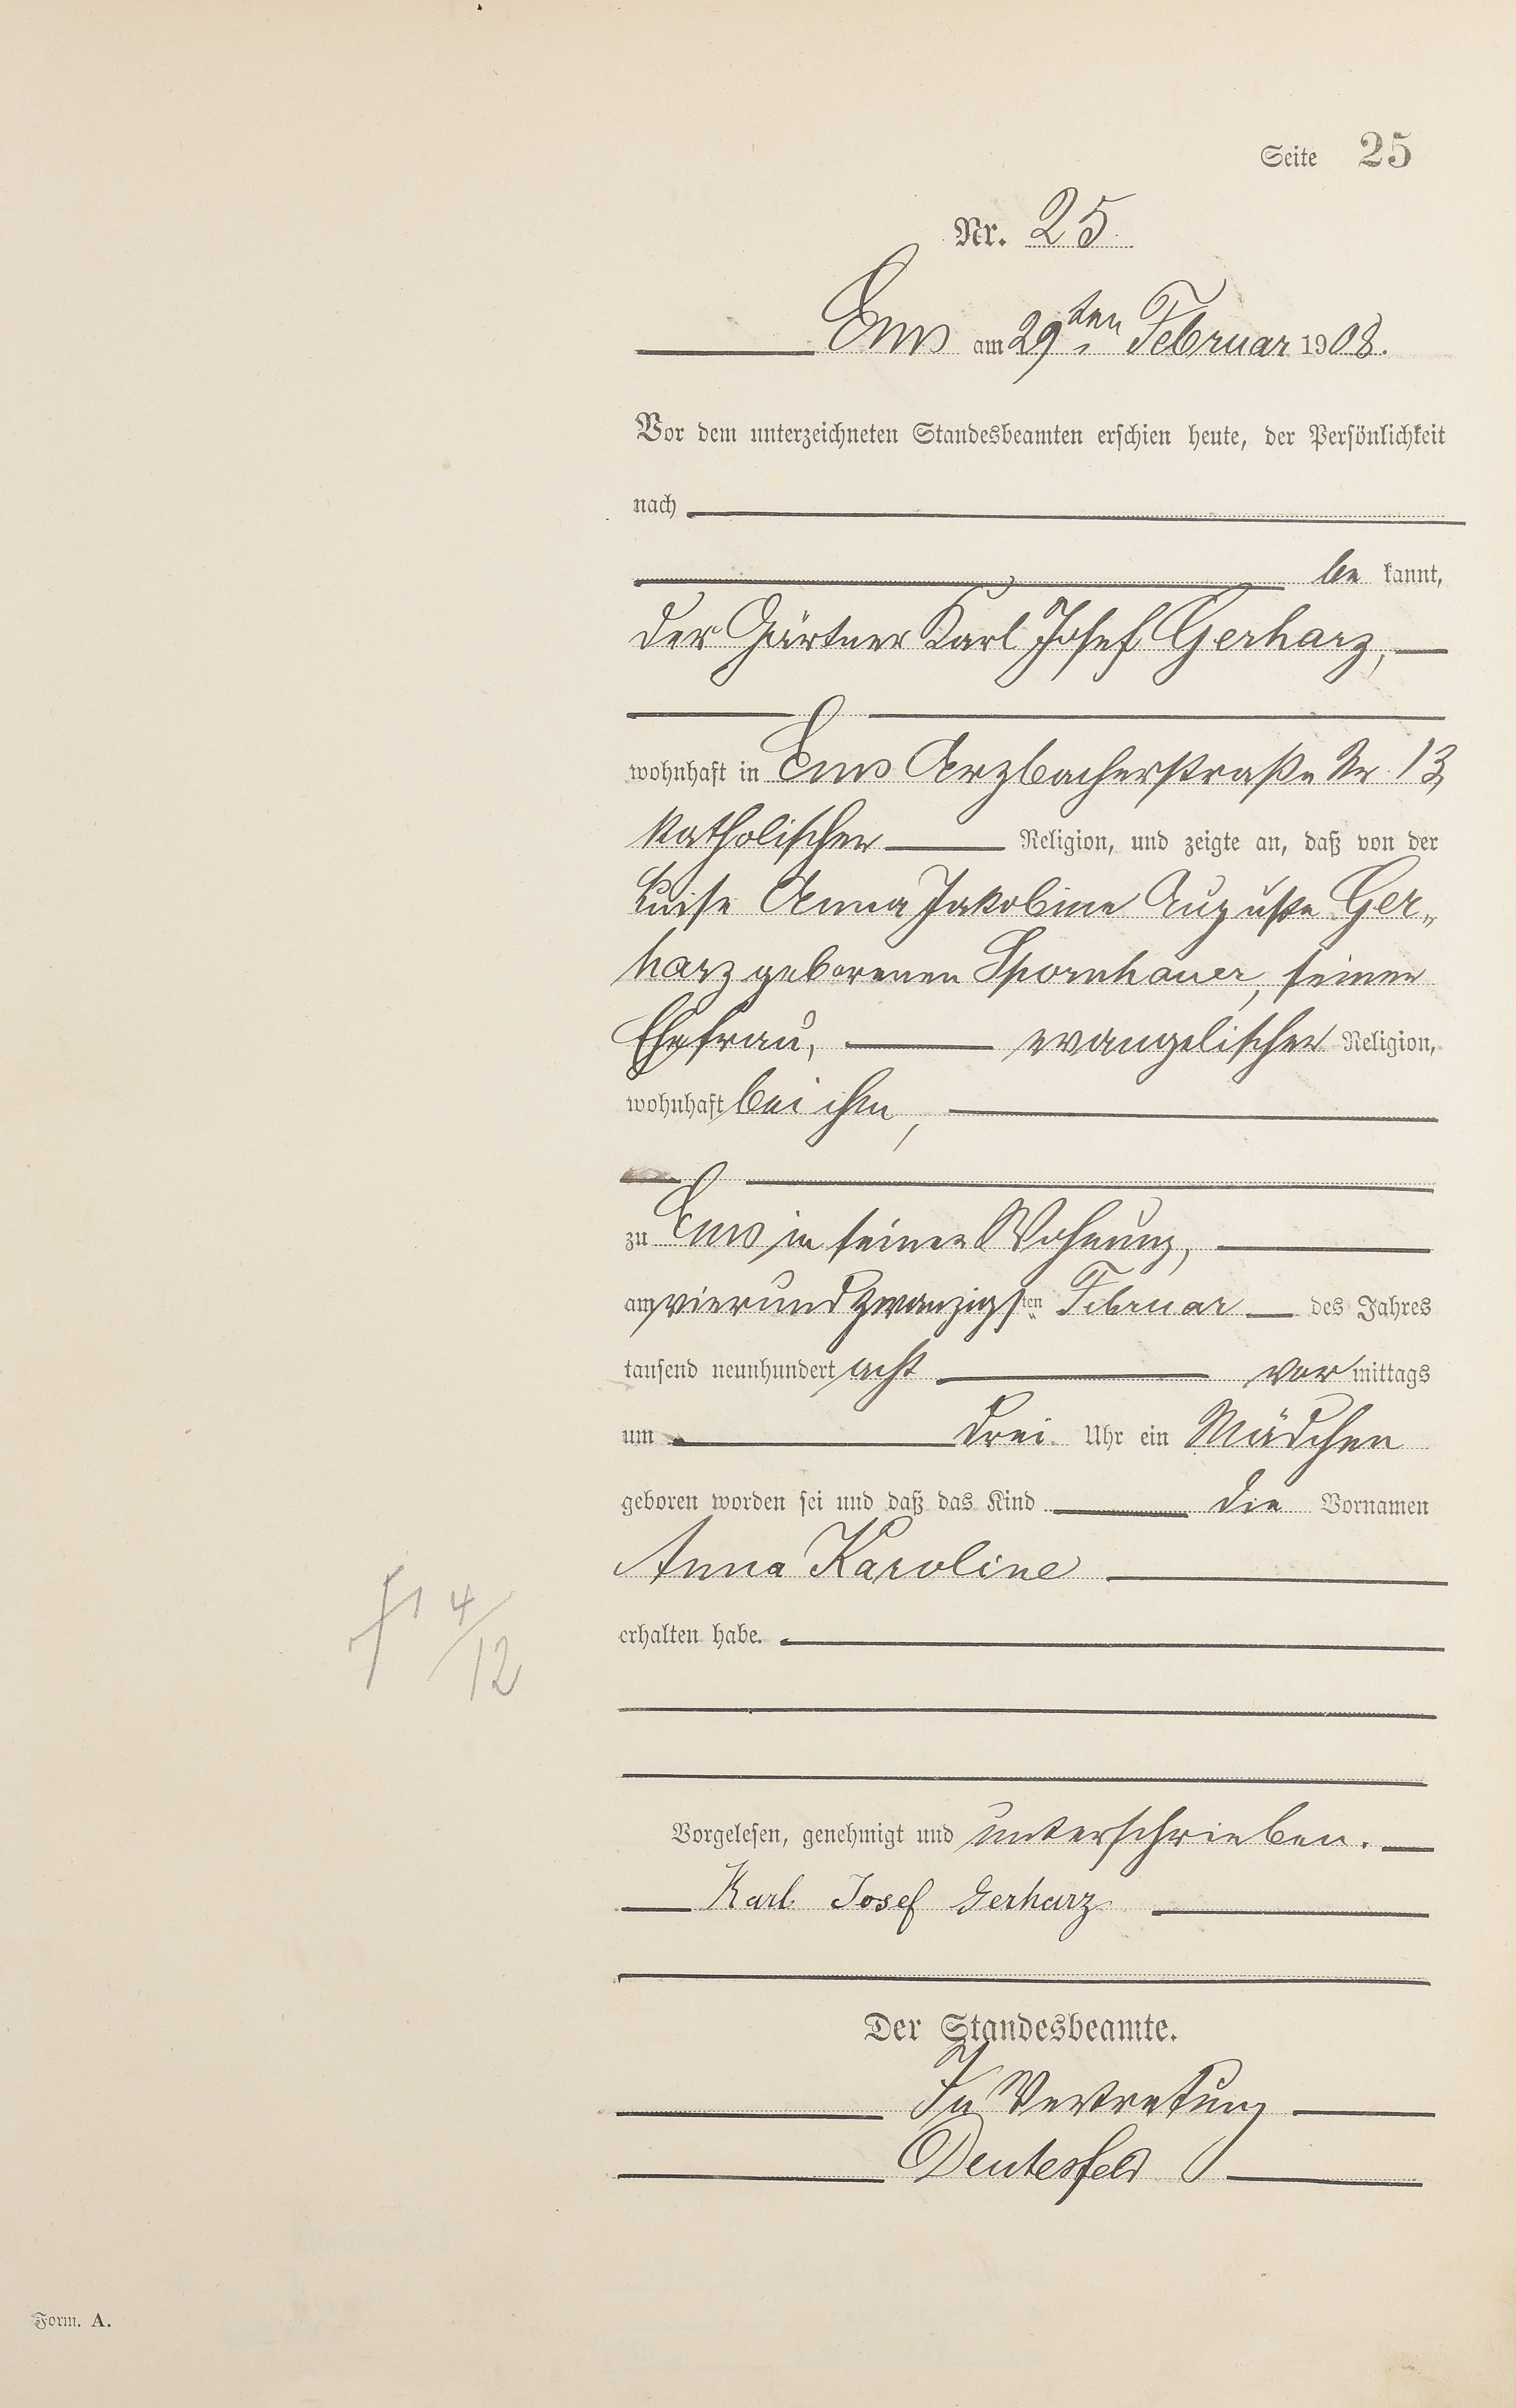 Seite 25
Nr. 25.
Ems am 29ten Februar 1908.
Vor dem unterzeichneten Standesbeamten erschien heute, der Persönlichkeit
nach
be kannt,
der Gärtner Karl Josef Gerharz,
wohnhaft in Ems Arzbacherstraße Nr. 13,
katholischer Religion, und zeigte an, daß von der
Luise Anna Jakobine Auguste Ger„
harz geborenen Spornhauer, seiner
Ehefrau, evangelischer Religion,
wohnhaft bei ihm,
zu Ems in seiner Wohnung,
am vierundzwanzigsten Februar des Jahres
tausend neunhundert acht vor mittags
um drei Uhr ein Mädchen
geboren worden sei und daß das Kind die Vornamen
Anna Karoline
4/12
erhalten habe.
Vorgelesen, genehmigt und unterschrieben.
Karl Josef Gerharz
Der Standesbeamte.
In Vertretung
Deutesfeld
Form. A.